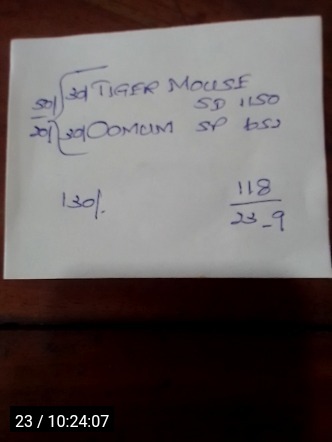 TIGER MOUSE
SP 1150
OOMUM SP 650
130/.
118
23-9
23 / 10:24:07